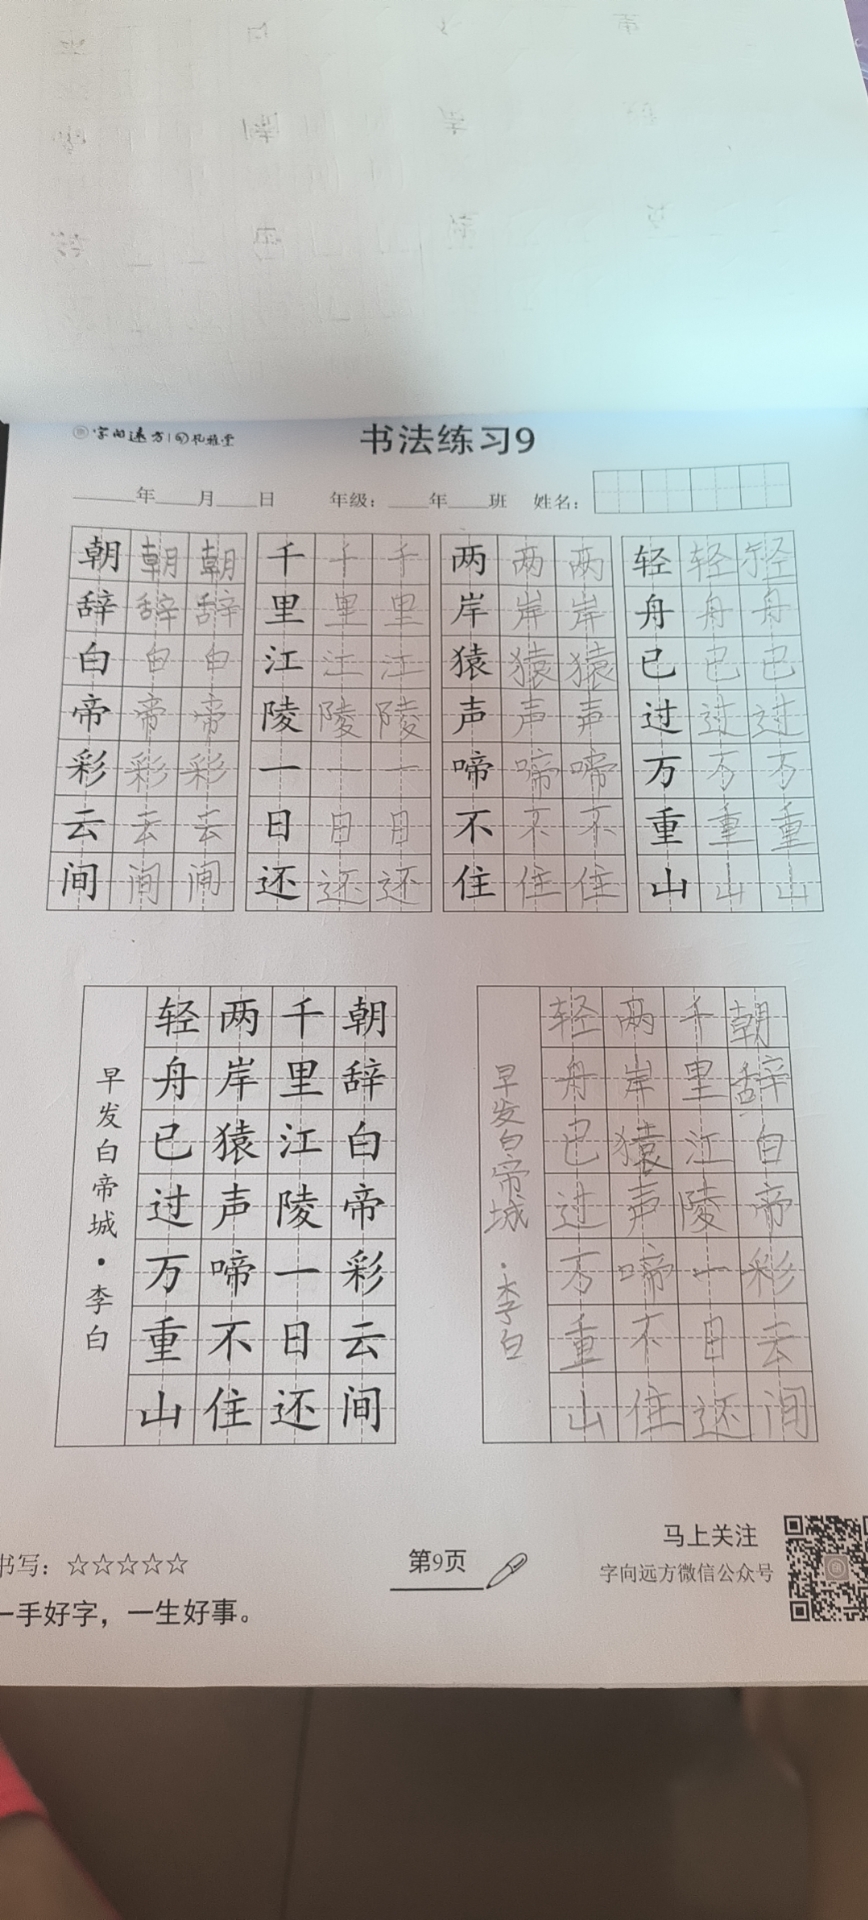 字向远方 | 孔雅堂
书法练习9
____年____月____日 年级：____年____班 姓名：
朝朝朝 千千千 两两两 轻轻轻
辞辞辞 里里里 岸岸岸 舟舟舟
白白白 江江江 猿猿猿 已已已
帝帝帝 陵陵陵 声声声 过过过
彩彩彩 一一一 啼啼啼 万万万
云云云 日日日 不不不 重重重
间间间 还还还 住住住 山山山
朝辞白帝彩云间
千里江陵一日还
两岸猿声啼不住
轻舟已过万重山
早发白帝城·李白
朝辞白帝彩云间
千里江陵一日还
两岸猿声啼不住
轻舟已过万重山
早发白帝城·李白
书写：☆☆☆☆☆
一手好字，一生好事。
第9页
马上关注
字向远方微信公众号